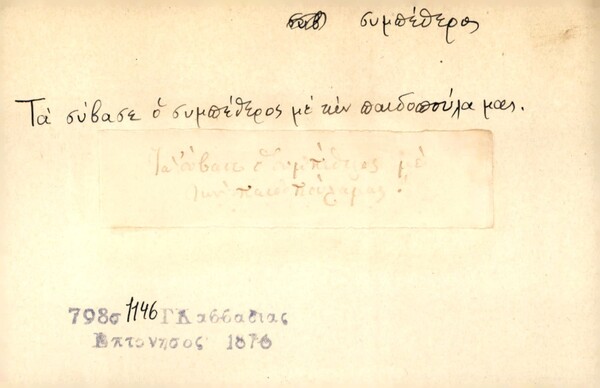 συμπέθερος
Τὰ σύβασε ὁ συμπέθερος μὲ τὴν παιδοπούλα μας.
Τὰ σύβασε ὁ συμπέθερος μὲ
τὴν παιδοπούλα μας!
798σ 1146 Γ Καββαδιας
Επτονησος 1876